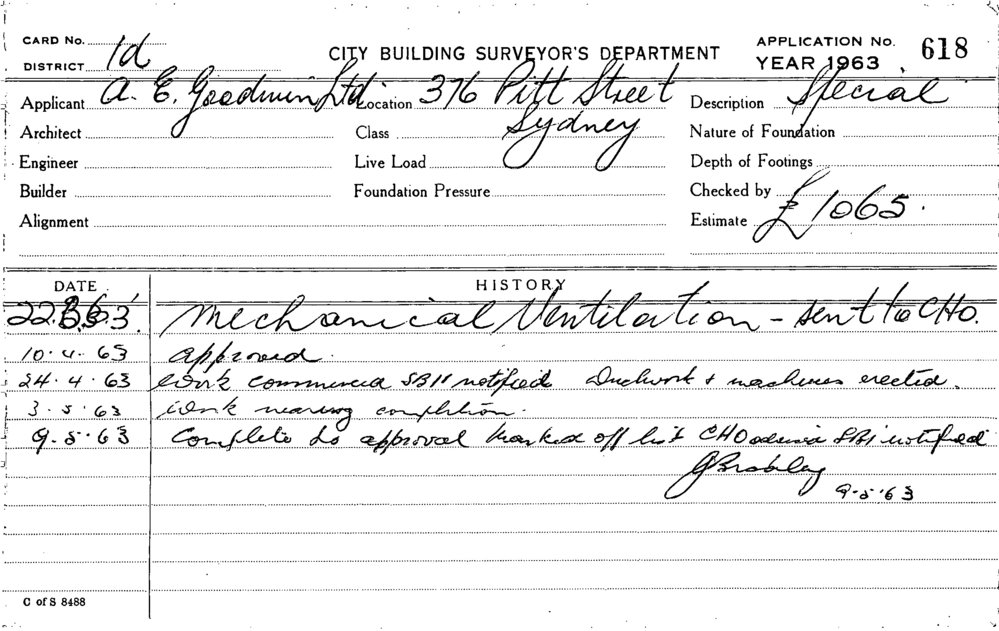 CARD No.
DISTRICT 1d
CITY BUILDING SURVEYOR'S DEPARTMENT
APPLICATION No. 618
YEAR 1963
Applicant A. E. Goodwin Ltd Location 376 Pitt Street Description Special
Architect Class Sydney Nature of Foundation
Engineer Live Load Depth of Footings
Builder Foundation Pressure Checked by
Alignment Estimate £1065.
DATE HISTORY
22.3.63. Mechanical Ventilation - sent to CHO.
10.4.63 approved.
24.4.63 Work commenced SBI notified Ductwork + machines erected.
3.5.63 Work nearing completion.
9.5.63 Complete to approval marked off list CHO advised SBI notified
9.5.63
C of S 8488